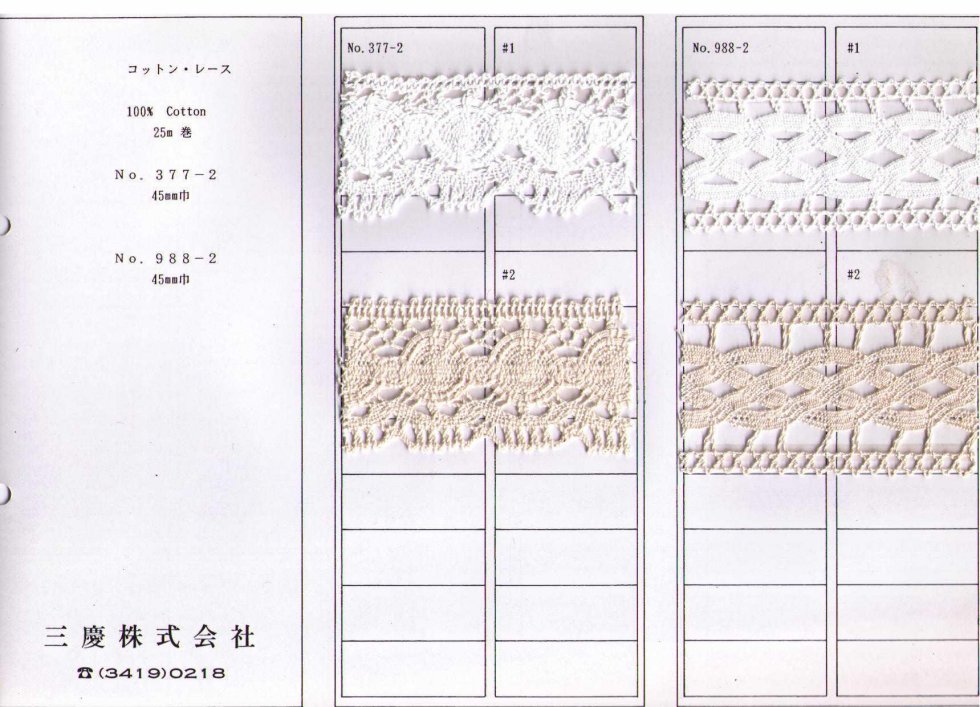 コットン・レース
100% Cotton
25m 巻
No. 377-2
45mm巾
No. 988-2
45mm巾
三慶株式会社
☎(3419)0218
No. 377-2
#1
#2
No. 988-2
#1
#2